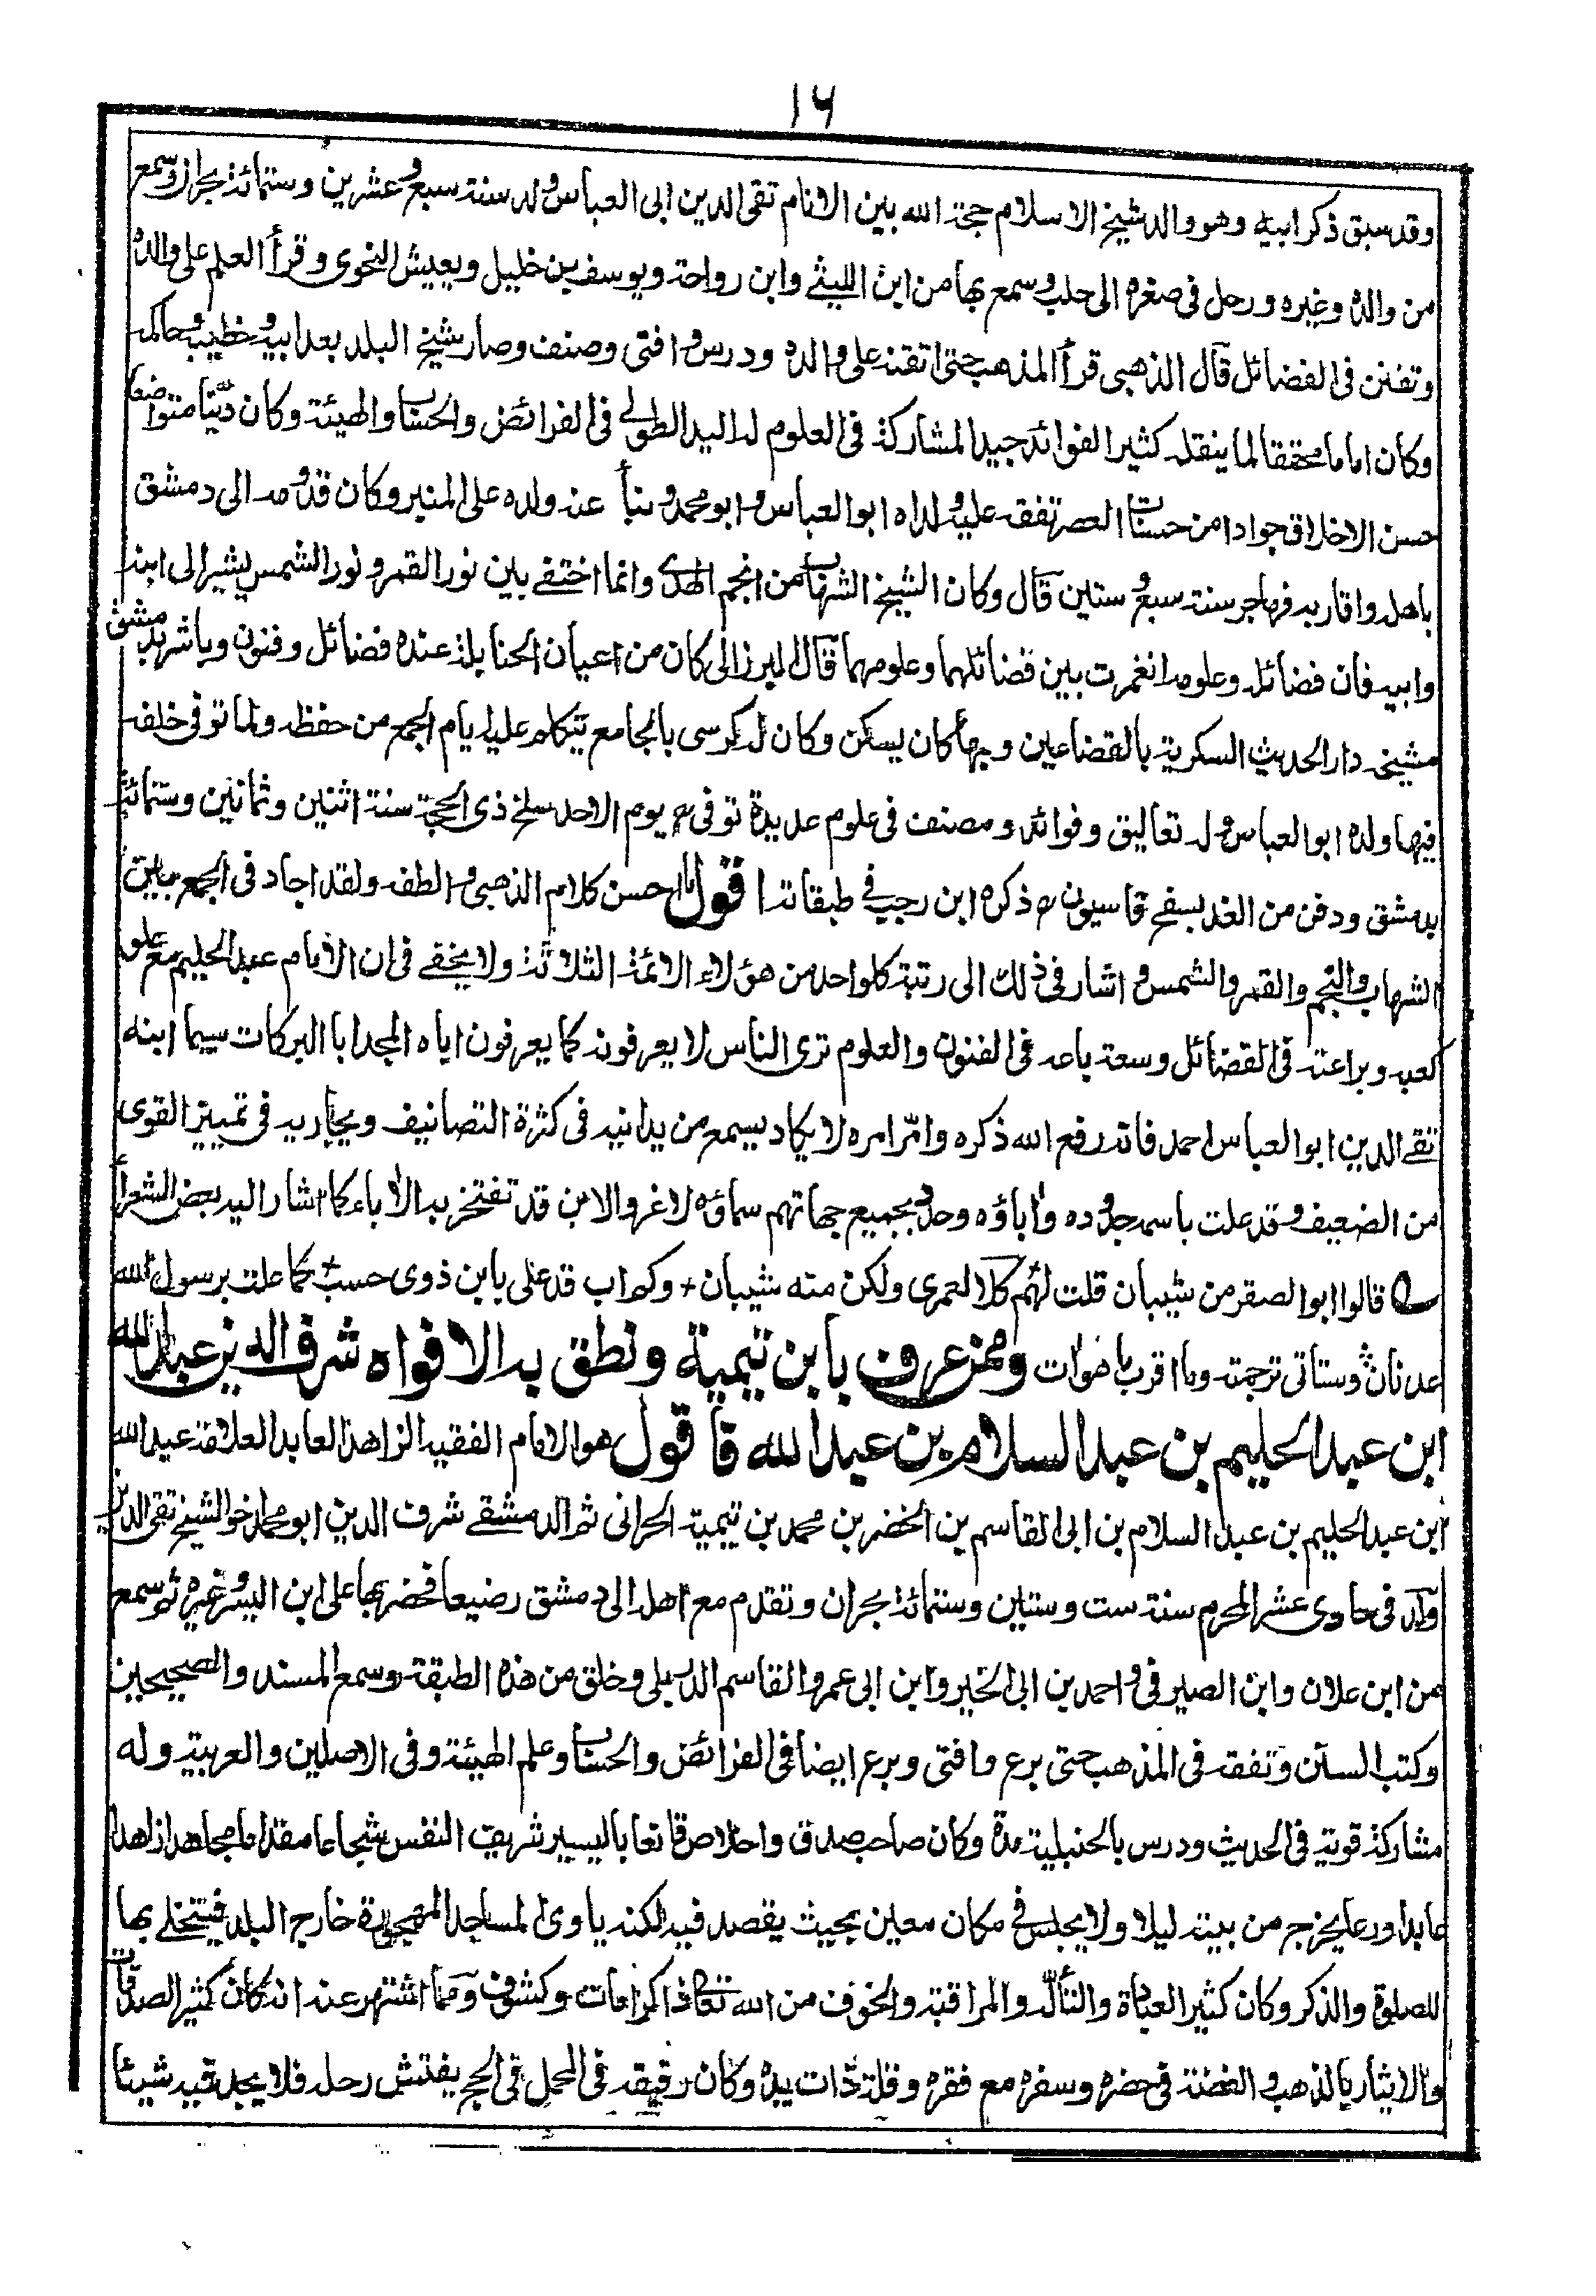 ١٦
وقد سبق ذكر ابيه وهو والد شيخ الاسلام حجة الله بين الانام تقى الدين ابى العباس ولد سنة سبع وعشرين وستمائة بحران وسمع
من والده وغيره ورحل فى صغره الى حلب وسمع بها من ابن الليثى وابن رواحة ويوسف بن خليل ويعيش النحوى وقرأ العلم على والده
وتفنن فى الفضائل قال الذهبى قرأ المذهب حتى اتقنه على والده ودرس وافتى وصنف وصار شيخ البلد بعد ابيه وخطيبه وحاكمه
وكان اماما محققا لما ينقله كثير الفوائد جيد المشاركة فى العلوم له اليد الطولى فى الفرائض والحساب والهيئة وكان دينا متواضعا
حسن الاخلاق جوادا من حسنات العصر تفقه عليه ولداه ابو العباس وابو محمد و نبأ عنه ولده على المنبر وكان قدومه الى دمشق
باهله واقاربه فرهاجر سنة سبع وستين قال وكان الشيخ الشهاب من انجم الهدى وانما اختفى بين نور القمر ونور الشمس يشير الى ابنه
وابيه فان فضائله وعلومه انغمرت بين فضائلهما وعلومهما قال البرزالى كان من اعيان الحنابلة عنده فضائل وفنون وباشر بدمشق
مشيخة دار الحديث السكرية بالقصاعين وبها كان يسكن وكان له كرسى بالجامع يتكلم عليه ايام الجمع من حفظه ولما توفى خلفه
فيها ولده ابو العباس وله تعاليق وفوائد ومصنف فى علوم عديدة توفى رح يوم الاحد سلخ ذى الحجة سنة اثنين وثمانين وستمائة
بدمشق ودفن من الغد بسفح قاسيون رح ذكره ابن رجب فى طبقاته اقول ما احسن كلام الذهبى والطفه ولقد اجاد فى الجمع مابين
الشهاب والنجم والقمر والشمس واشار فى ذلك الى رتبة كلواحد من هؤلاء الائمة الثلاثة ولا يخفى فى ان الامام عبد الحليم مع علو
كعبه وبراعته فى الفضائل وسعة باعه فى الفنون والعلوم ترى الناس لا يعرفونه كما يعرفون اباه المجد ابا البركات سيما ابنه
تقى الدين ابو العباس احمد فانه رفع الله ذكره وامّر امره لا يكاد يسمع من يدانيه فى كثرة التصانيف ويجاريه فى تمييز القوى
من الضعيف وقد علت باسمه جدوده واباؤه وحلو بجميع جهاتهم سماؤه لا غرو الابن قد تفتخر به الاباء كما اشار اليه بعض الشعرأ
قالوا ابو الصقر من شيبان قلت لهم كلا لعمرى ولكن منه شيبان + وكم اب قد على بابن ذوى حسب + كما علت برسول الله
عدنان وستاتى ترجمته وما اقرب ما هوات وممن عرف بابن تيمية ونطق به الافواه شرف الدين عبد الله
ابن عبد الحليم بن عبد السلام بن عبد الله فاقول هو الامام الفقيه الزاهد العابد العلامة عبد الله
ابن عبد الحليم بن عبد السلام بن ابى القاسم بن الخضر بن محمد بن تيمية الحرانى ثم الدمشقى شرف الدين ابو محمد اخو الشيخ تقى الدين
ولد فى حادى عشر المحرم سنة ست وستين وستمائة بحران وتقدم مع اهله الى دمشق رضيعا فحضر بها على ابن اليسر وغيره ثم سمع
من ابن علان وابن الصيرفى واحمد بن ابى الخير وابن ابى عمر والقاسم الاربلى وخلق من هذه الطبقة وسمع المسند والصحيحين
وكتب السنن وتفقه فى المذهب حتى برع وافتى وبرع ايضا فى الفرائض والحساب وعلم الهيئة وفى الاصلين والعربية وله
مشاركة قوية فى الحديث ودرس بالحنبلية مدة وكان صاحب صدق واخلاص قانعا باليسير شريف النفس شجاعا مقداما مجاهدا زاهدا
عابدا ورعا يخرج من بيته ليلا ولا يجلس فى مكان معين بحيث يقصد فيه لكنه ياوى المساجد المهجورة خارج البلد فيتخلى بها
للصلوة والذكر وكان كثير العبادة والتألّه والمراقبة والخوف من الله تعالى ذا كرامات وكشوف ومما اشتهر عنه انه كان كثير الصدقات
والايثار بالذهب والفضة فى حضره وسفره مع فقره وقلة ذات يده وكان رفيقه فى المحمل فى الحج يفتش رحله فلا يجد فيه شيئا